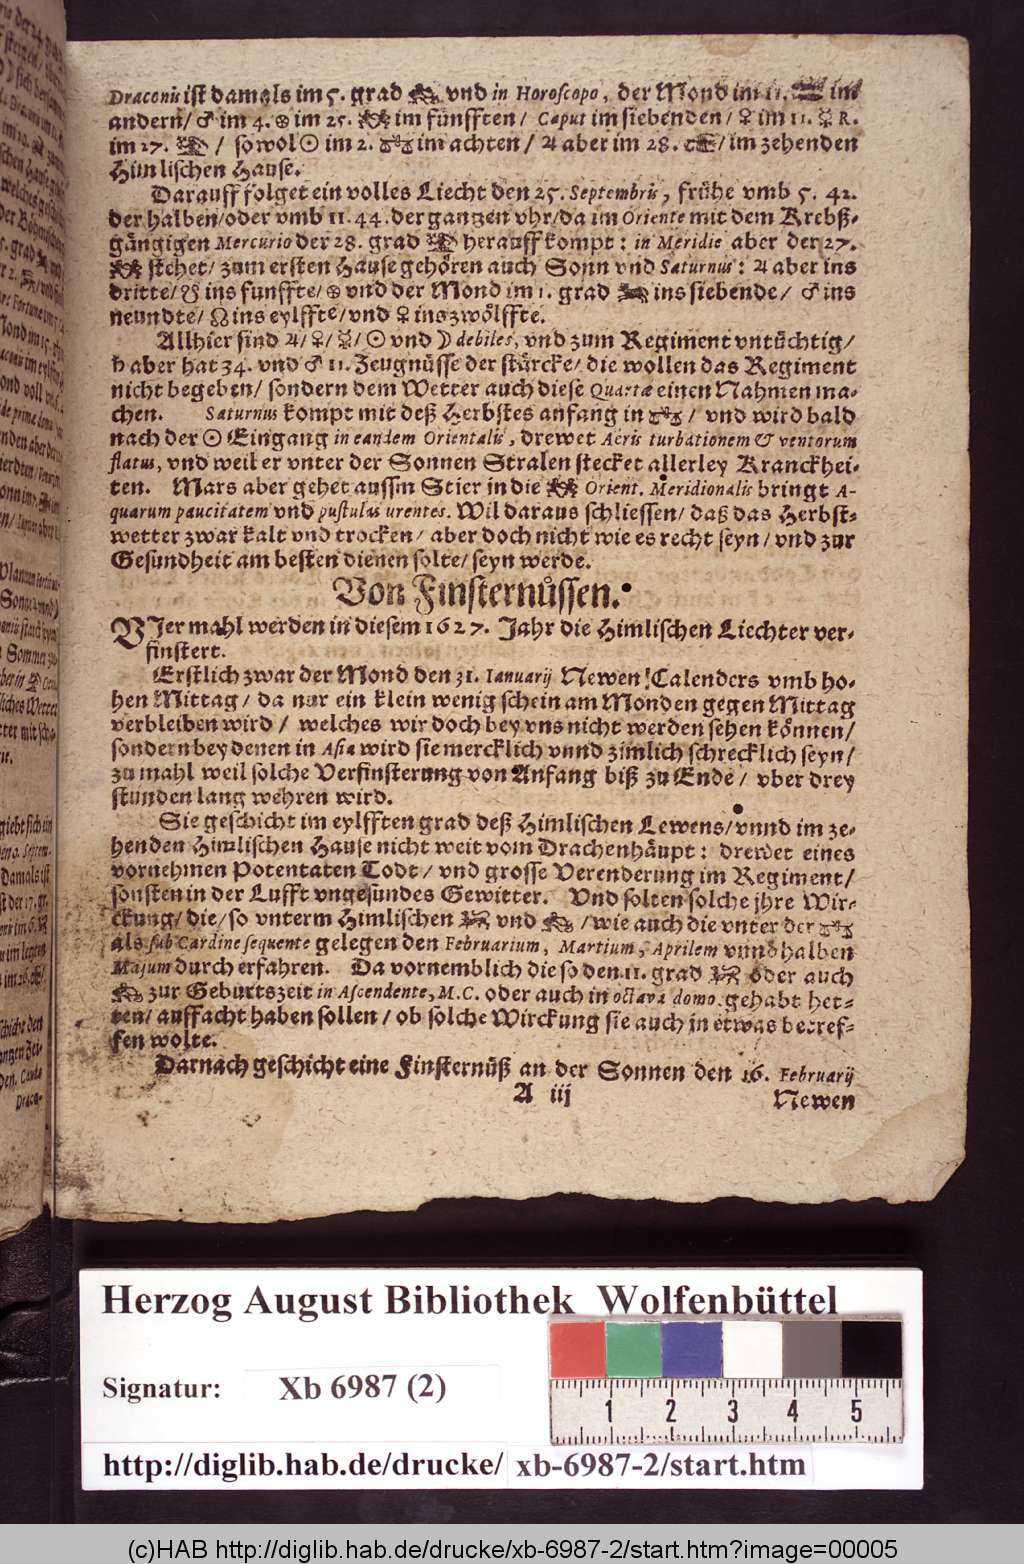 Draconis ist damals im 5. grad ♌ vnd in Horoscopo, der Mond im 11. im
andern/ ♂ im 4. ⊗ im 25. ♊ im fünfften/ Caput im siebenden/ ♀ im 11. ☿ R.
im 27. ♍ / sowol ☉ im 2. ♎ im achten / ♃ aber im 28. / im zehenden
Himlischen Hause.
Darauff folget ein volles Liecht den 25. Septembris, frühe vmb 5. 42.
der halben/ oder vmb 11. 44. der gantzen vhr/ da im Oriente mit dem Krebß-
gängigen Mercurio der 28. grad ♍ herauff kompt: in Meridie aber der 27.
♊ stehet/ zum ersten Hause gehören auch Sonn vnd Saturnus: ♃ aber ins
dritte/ ☋ ins funffte/ ⊗ vnd der Mond im 1. grad ♈ ins siebende/ ♂ ins
neundte/ ☊ ins eylffte/ vnd ♀ ins zwölffte.
Allhier sind ♃/ ♀/ ☿/ ☉ vnd ☽ debiles, vnd zum Regiment vntüchtig/
♄ aber hat 34. vnd ♂ 11. Zeugnüsse der stärcke/ die wollen das Regiment
nicht begeben/ sondern dem Wetter auch diese Quartæ einen Nahmen ma-
chen. Saturnus kompt mit deß Herbstes anfang in ♎/ vnd wird bald
nach der ☉ Eingang in eandem Orientalis, drewet Aeris turbationem & ventorum
flatus, vnd weil er vnter der Sonnen Stralen stecket allerley Kranckhei-
ten. Mars aber gehet aussm Stier in die ♊ Orient. Meridionalis bringt A-
quarum paucitatem vnd pustulas urentes. Wil daraus schliessen/ daß das Herbst-
wetter zwar kalt vnd trocken/ aber doch nicht wie es recht seyn/ vnd zur
Gesundheit am besten dienen solte/ seyn werde.
Von Finsternüssen.
VJer mahl werden in diesem 1627. Jahr die Himlischen Liechter ver-
finstert.
Erstlich zwar der Mond den 31. Ianuarij Newen Calenders vmb ho-
hen Mittag/ da nur ein klein wenig schein am Monden gegen Mittag
verbleiben wird / welches wir doch bey vns nicht werden sehen können/
sondern bey denen in Asia wird sie mercklich vnnd zimlich schrecklich seyn/
zu mahl weil solche Verfinsterung von Anfang biß zu Ende/ vber drey
stunden lang wehren wird.
Sie geschicht im eylfften grad deß Himlischen Lewens/ vnnd im ze-
henden Himlischen Hause nicht weit vom Drachenhäupt: drewet eines
vornehmen Potentaten Todt/ vnd grosse Verenderung im Regiment/
sonsten in der Lufft vngesundes Gewitter. Vnd solten solche jhre Wir-
ckung/ die/ so vnterm Himlischen vnd ♌/ wie auch die vnter der ♎
als sub Cardine sequente gelegen den Februarium, Martium, Aprilem vnnd halben
Majum durch erfahren. Da vornemblich die so den 11. grad oder auch
♌ zur Geburtszeit in Ascendente, M.C. oder auch in octava domo gehabt het-
ten/ auffacht haben sollen / ob solche Wirckung sie auch in etwas betref-
fen wolte.
Darnach geschicht eine Finsternüß an der Sonnen den 16. Februarij
A iij Newen
Herzog August Bibliothek Wolfenbüttel
Signatur: Xb 6987 (2)
1 2 3 4 5
http://diglib.hab.de/drucke/ xb-6987-2/start.htm
(c)HAB http://diglib.hab.de/drucke/xb-6987-2/start.htm?image=00005